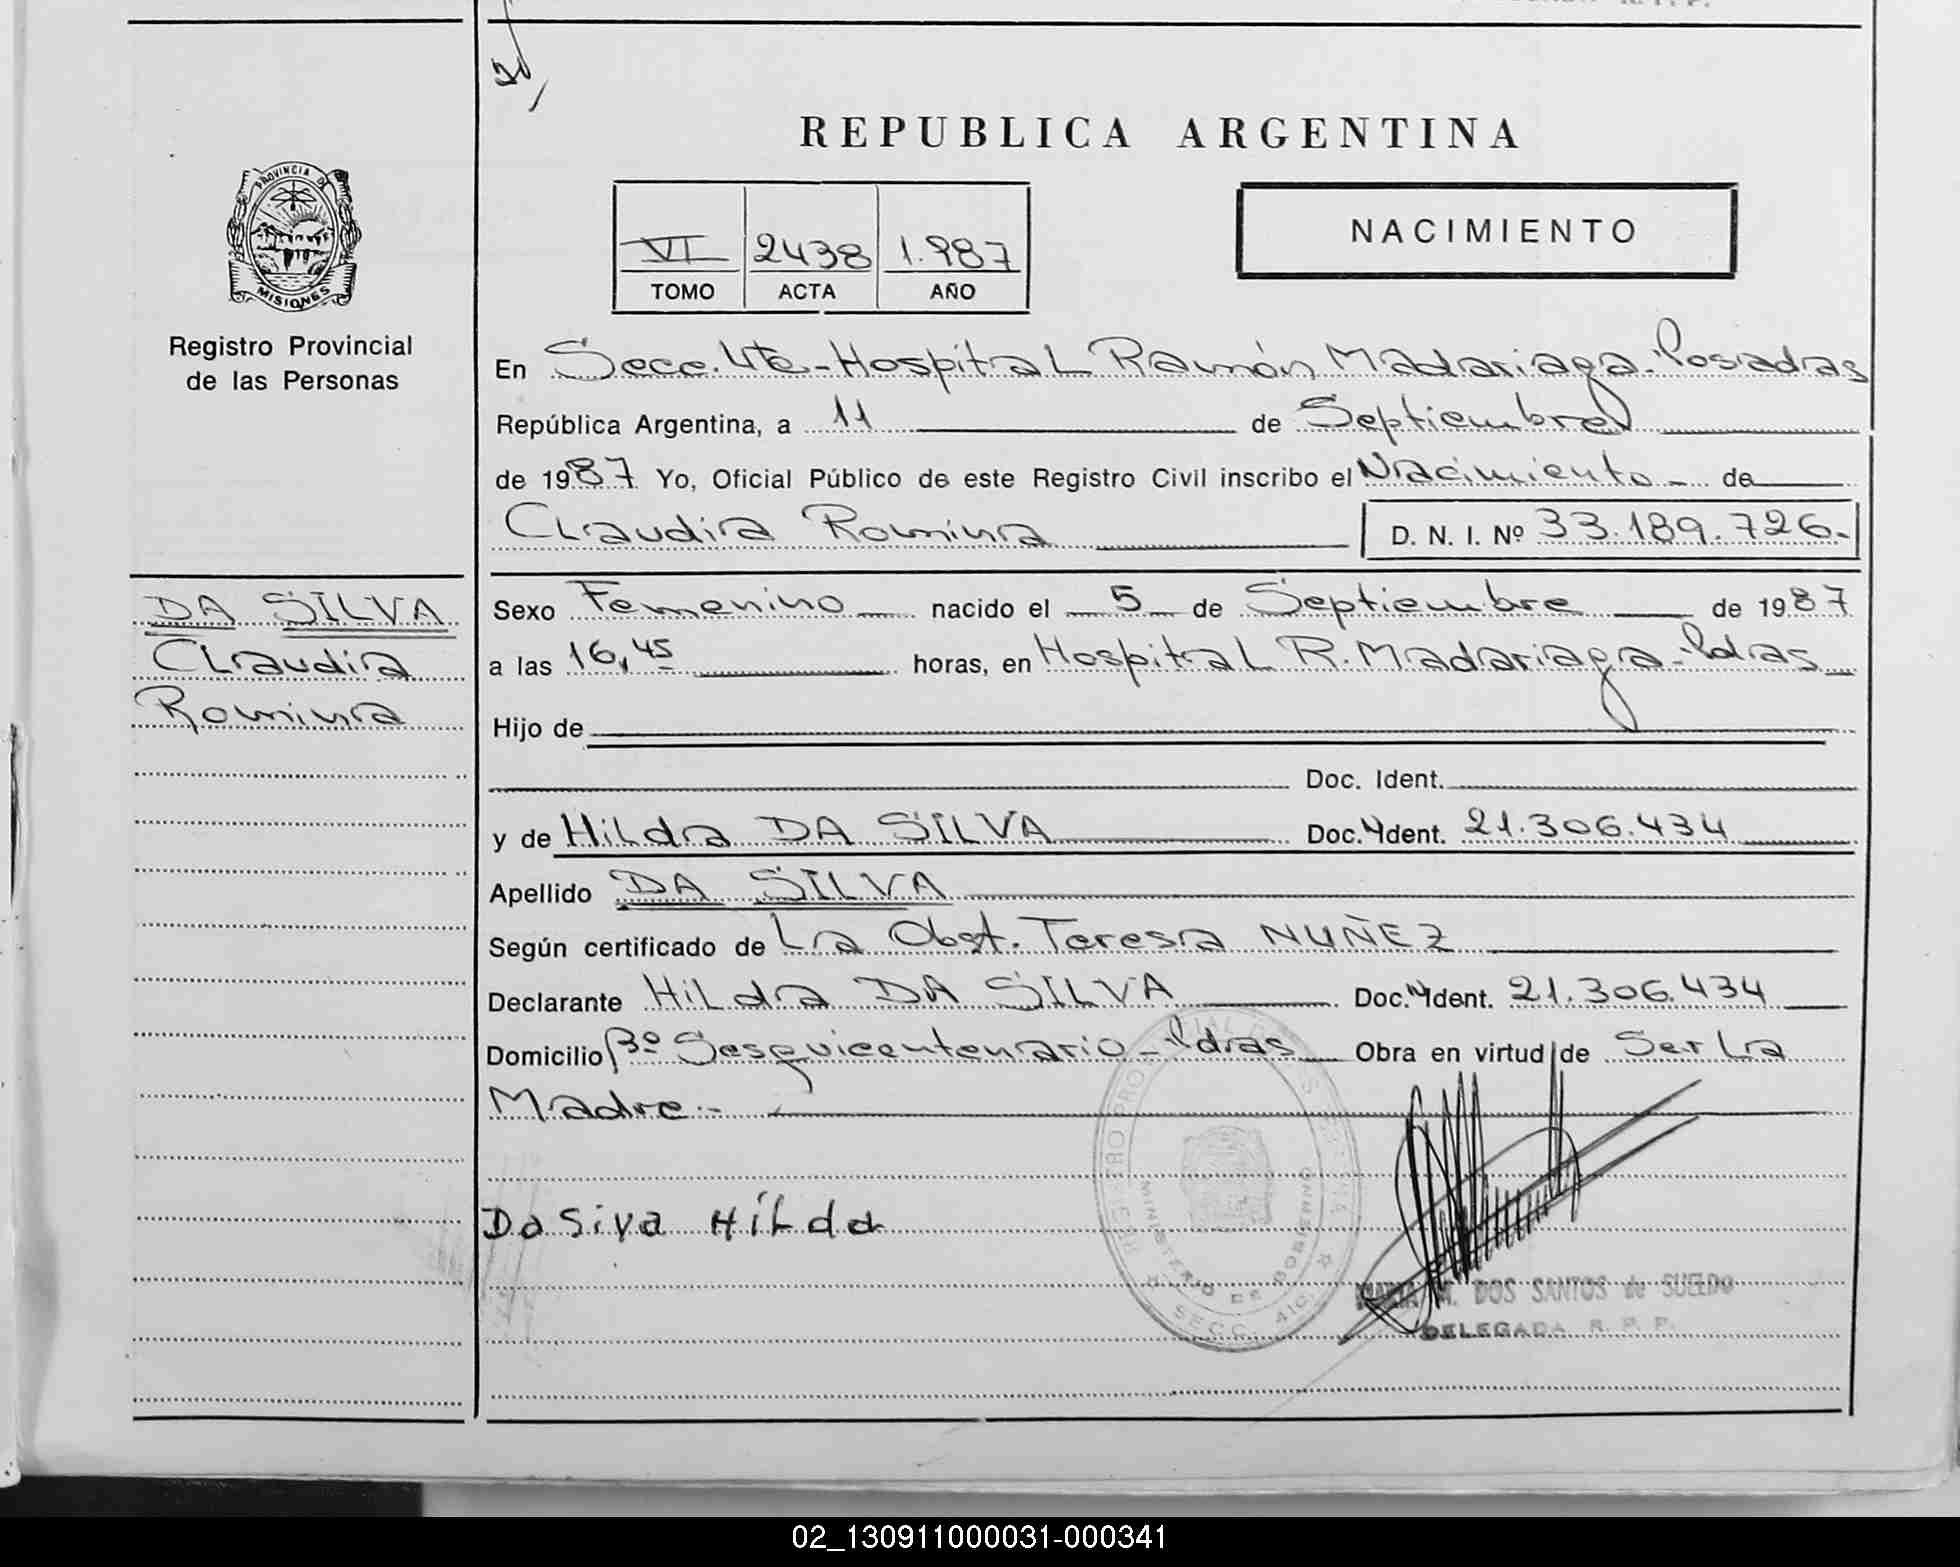 REPUBLICA ARGENTINA
PROVINCIA DE
MISIONES
Registro Provincial
de las Personas
VI 2438 1.987
TOMO ACTA AÑO
NACIMIENTO
En Secc. 4ta - Hospital Ramón Madariaga - Posadas
República Argentina, a 11 de Septiembre
de 1987 Yo, Oficial Público de este Registro Civil inscribo el Nacimiento - de
Claudia Romina D. N. I. Nº 33.189.726.-
DA SILVA
Claudia
Romina
Sexo Femenino nacido el 5 de Septiembre de 1987
a las 16,45 horas, en Hospital R. Madariaga - Pdas
Hijo de
Doc. Ident.
y de Hilda DA SILVA Doc. Ident. 21.306.434
Apellido DA SILVA
Según certificado de La Obst. Teresa NUÑEZ
Declarante Hilda DA SILVA Doc. Ident. 21.306.434
Domicilio Bº Sesquicentenario - Pdas Obra en virtud de Ser La
Madre.-
Da Siva Hilda
REGISTRO PROVINCIAL DE LAS PERSONAS
MINISTERIO DE GOBIERNO
SECC. 4ta.
MARIA M. DOS SANTOS de SUELDO
DELEGADA R. P. P.
02_130911000031-000341